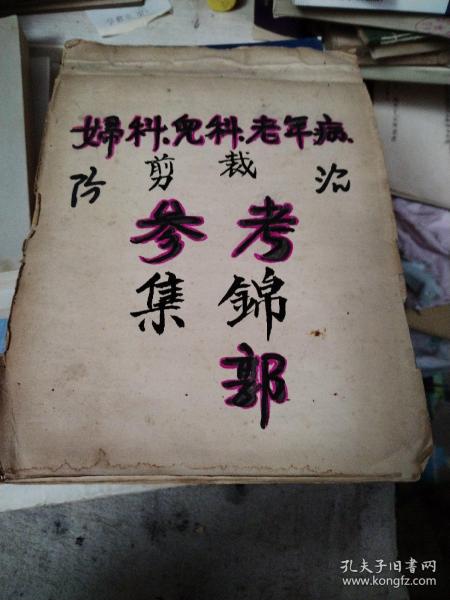 婦科、兒科、老年病、
防 剪裁 治
參考
集錦
郭
孔夫子旧书网
www.kongfz.com